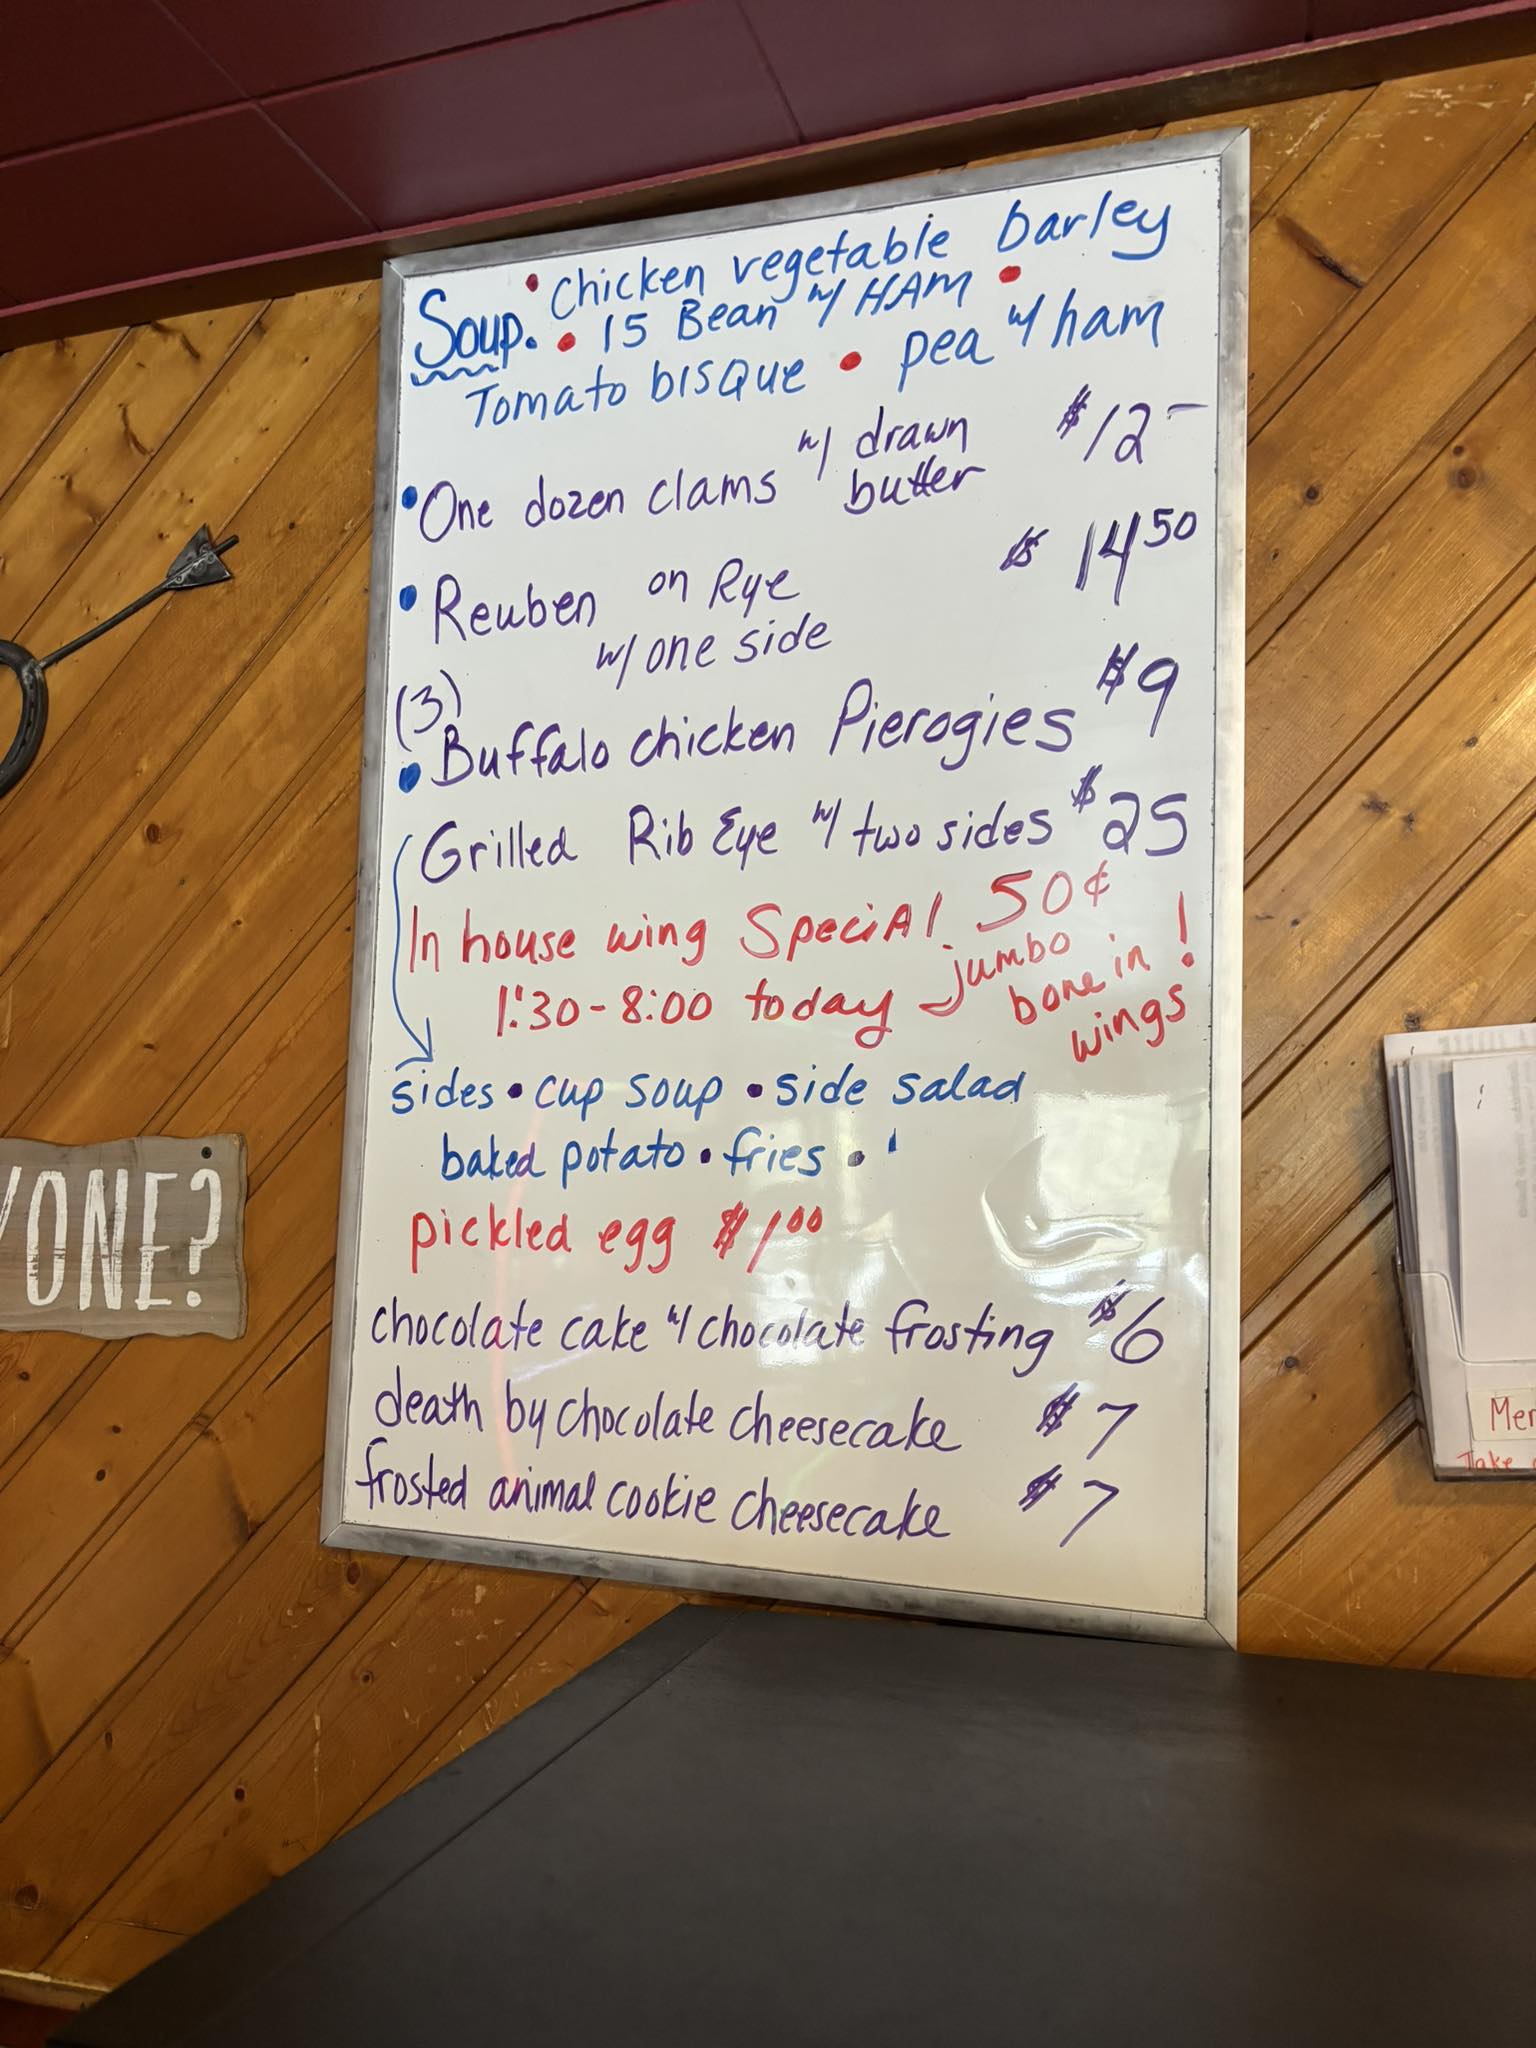 • Chicken vegetable barley
Soup. • 15 Bean w/ HAM •
Tomato bisque • pea w/ ham
• One dozen clams w/ drawn butter $12-
• Reuben on Rye $14.50
w/ one side
(3)
• Buffalo chicken Pierogies $9
Grilled Rib Eye w/ two sides $25
In house wing SpeciAl. 50¢
1:30-8:00 today jumbo
bone in
wings!
sides • cup soup • side salad
baked potato • fries •
pickled egg $1.00
chocolate cake w/ chocolate frosting $6
death by chocolate cheesecake $7
frosted animal cookie cheesecake $7
YONE?
Take